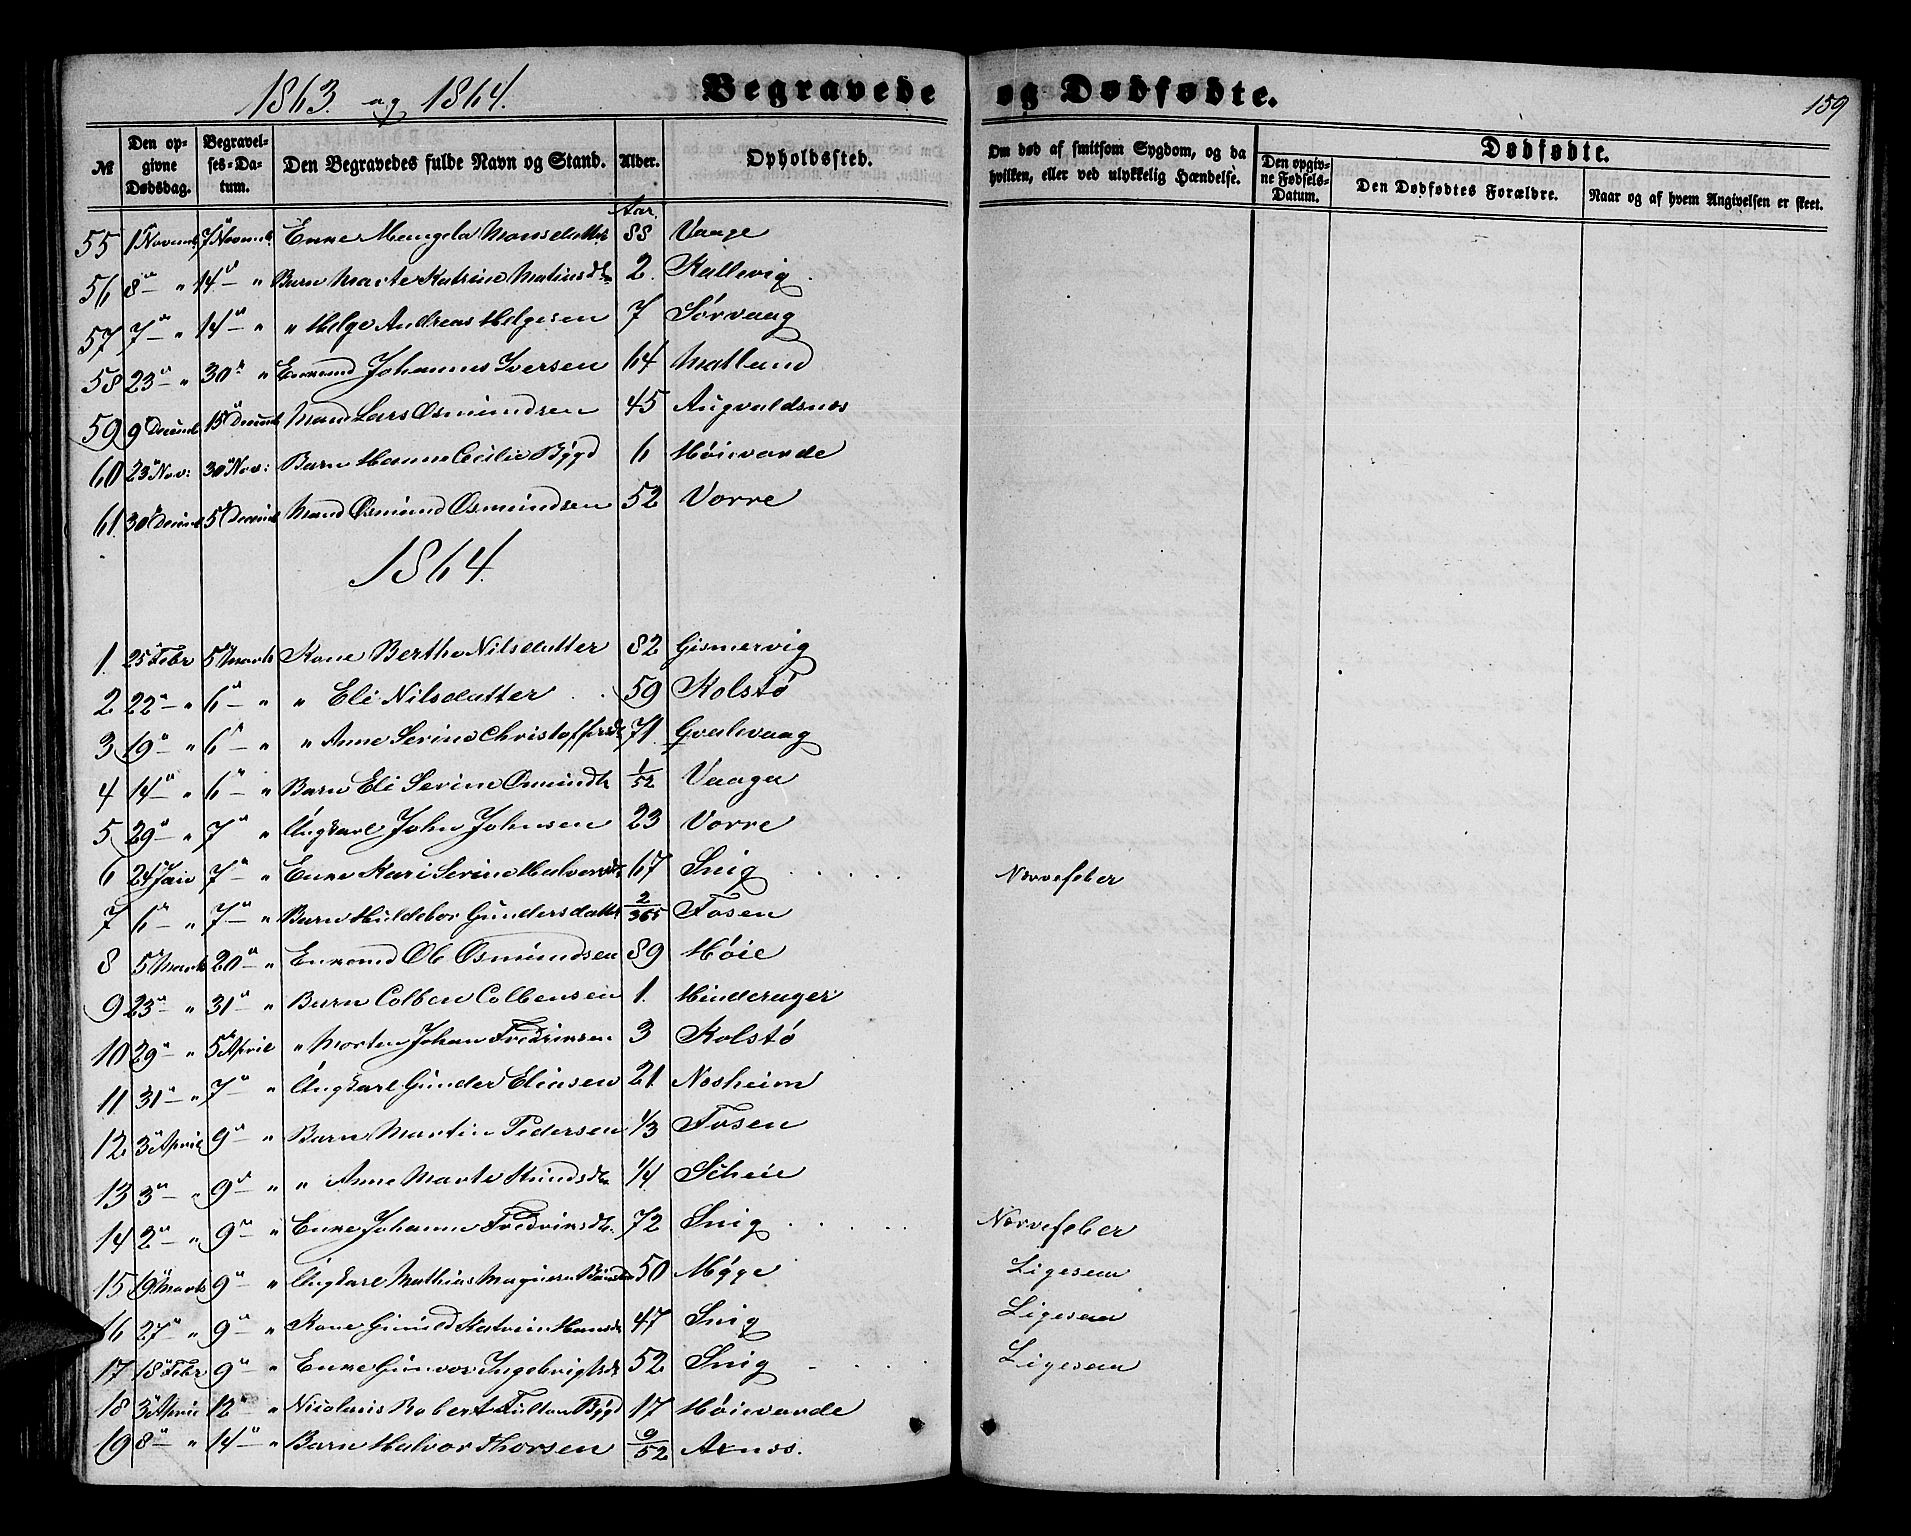 1863 og 1864.
Begravede og Dødfødte.
159
№ Den opgivne Dødsdag. Begravelses-Datum. Den Begravedes fulde Navn og Stand. Alder. Opholdssted. Om død af smitsom Sygdom, og da hvilken, eller ved ulykkelig Hændelse. Dødfødte. Den opgivne Fødsels-Datum. Den Dødfødtes Forældre. Naar og af hvem Angivelsen er skeet.
Aar.
55 1 Novemb 7 Novemb Enke Mangela Monsdatter 88 Vaage
56 8 — " 14 — " Barn Marte Katrine Matiasdtr 2 Kallevig
57 7 — " 14 — " " Helge Andreas Helgesen 7 Sørvaag
58 23 — " 30 " Enkemd Johannes Iversen 64 Matland
59 9 Decemb 15 Decemb Mand Lars Osmundsen 45 Augvaldsnes
60 23 Nov: 30 Nov: Barn Hanne Cecilie Bÿgd 6 Høievarde
61 30 Decemb 5 Decemb Mand Osmund Osmundsen 52 Vorre
1864.
1. 25 Febr 5 Marts Kone Berthe Nilsdatter 82 Gismervig
2 22 — " 6 — " " Eli Nilsdatter 59 Kolstø
3 19 — " 6 — " " Anne Serine Christoffersdtr 71 Gvalevaag
4 14 — " 6 — " Barn Eli Serine Osmundtr 1/52 Vaaga
5 29 — " 7 — " Ungkarl John Johnsen 23 Vorre
6 24 Jan 7 — " Enke Kari Serine Halvorsdtr 67 Snig Nervefeber
7 6 — " 7 — " Barn Huldebor Gundersdatter 2/365 Fosen
8 5 Marts 20 — " Enkemd Ole Osmundsen 89 Høie
9 23 — " 31 " Barn Colben Colbensen 1 Hinderager
10 29 — " 5 April " Morten Johan Fredriksen 3 Kolstø
11 31 — " 7 — " Ungkarl Gunder Eliasen 21 Nesheim
12 3 April 9 — " Barn Martin Pedersen 1/3 Fosen
13 3 — " 9 — " " Anne Marte Knudsdtr 1/4 Scheie
14 2 — " 9 — " Enke Johanne Fredriksdtr. 72 Snig Nervefeber
15 19 Marts 9 — " Ungkarl Mathias Magnus 50 Mÿge Ligesaa
16 27 " " 9 — " Kone Gunild Katrine Hansdtr 47 Snig Ligesaa
17 18 Febr 9 — " Enke Gunvor Ingebrigtsdtr 52 Snig Ligesaa
18 3 April 12 " Nicolaus Robert Fulton Bÿgd 17 Høievarde
19 8 — " 14 — " Barn Halvor Thorsen 9/52 Axnes.